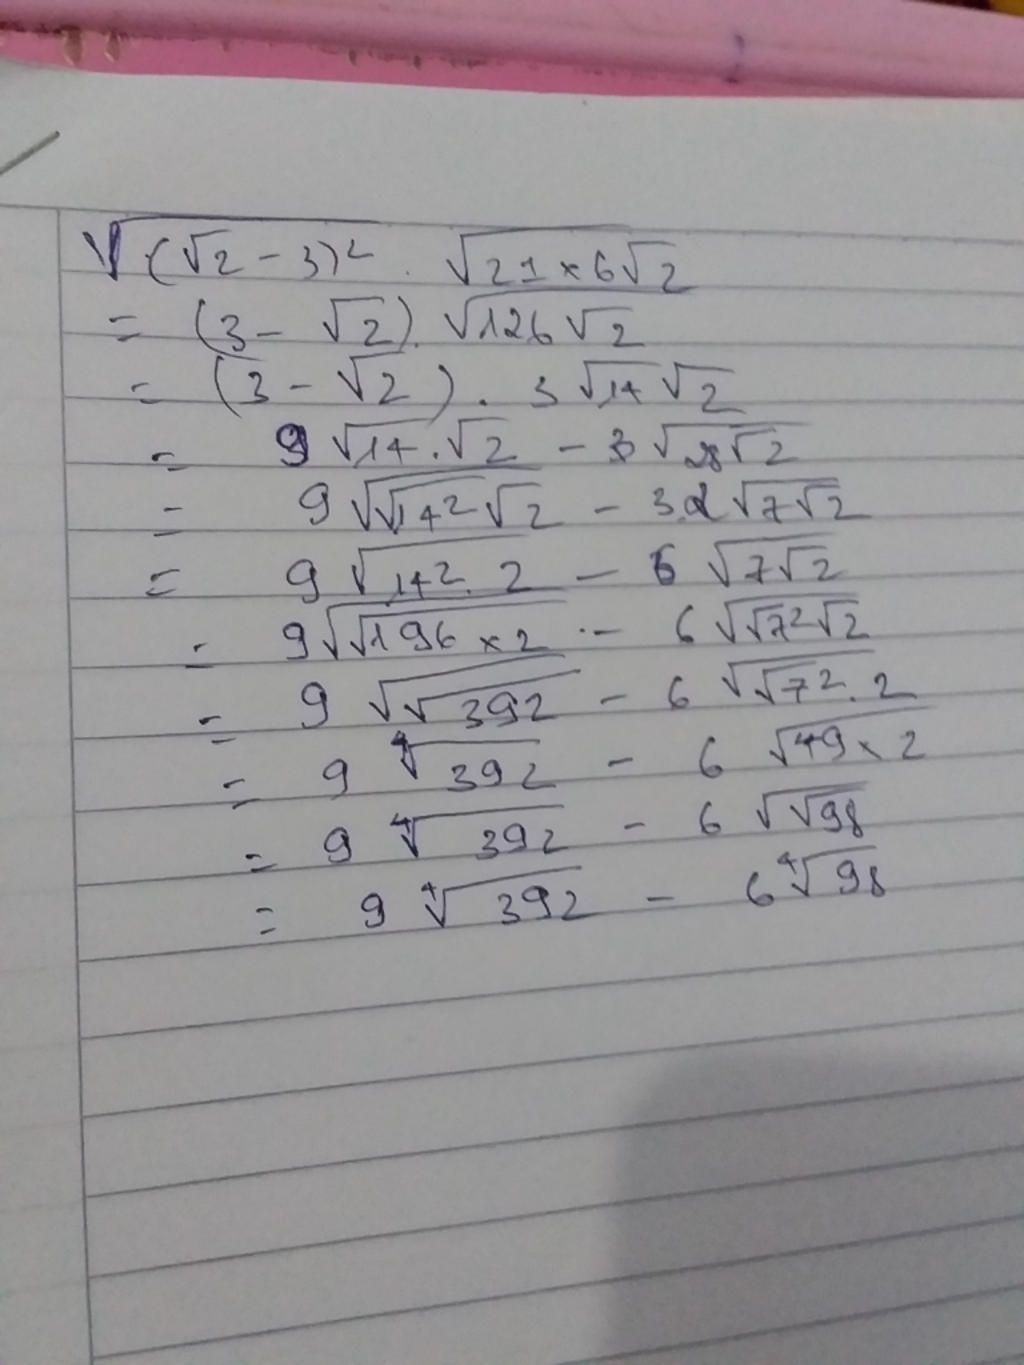 √(√2 - 3)² . √21 × 6√2
= (3 - √2) . √126√2
= (3 - √2) . 3√14√2
= 9√14.√2 - 3√28√2
= 9√√14²√2 - 3.2√7√2
= 9√14².2 - 6√7√2
= 9√√196×2 .- 6√√7²√2
= 9√√392 - 6√√7².2
= 9∜392 - 6√49×2
= 9∜392 - 6√√98
= 9∜392 - 6∜98